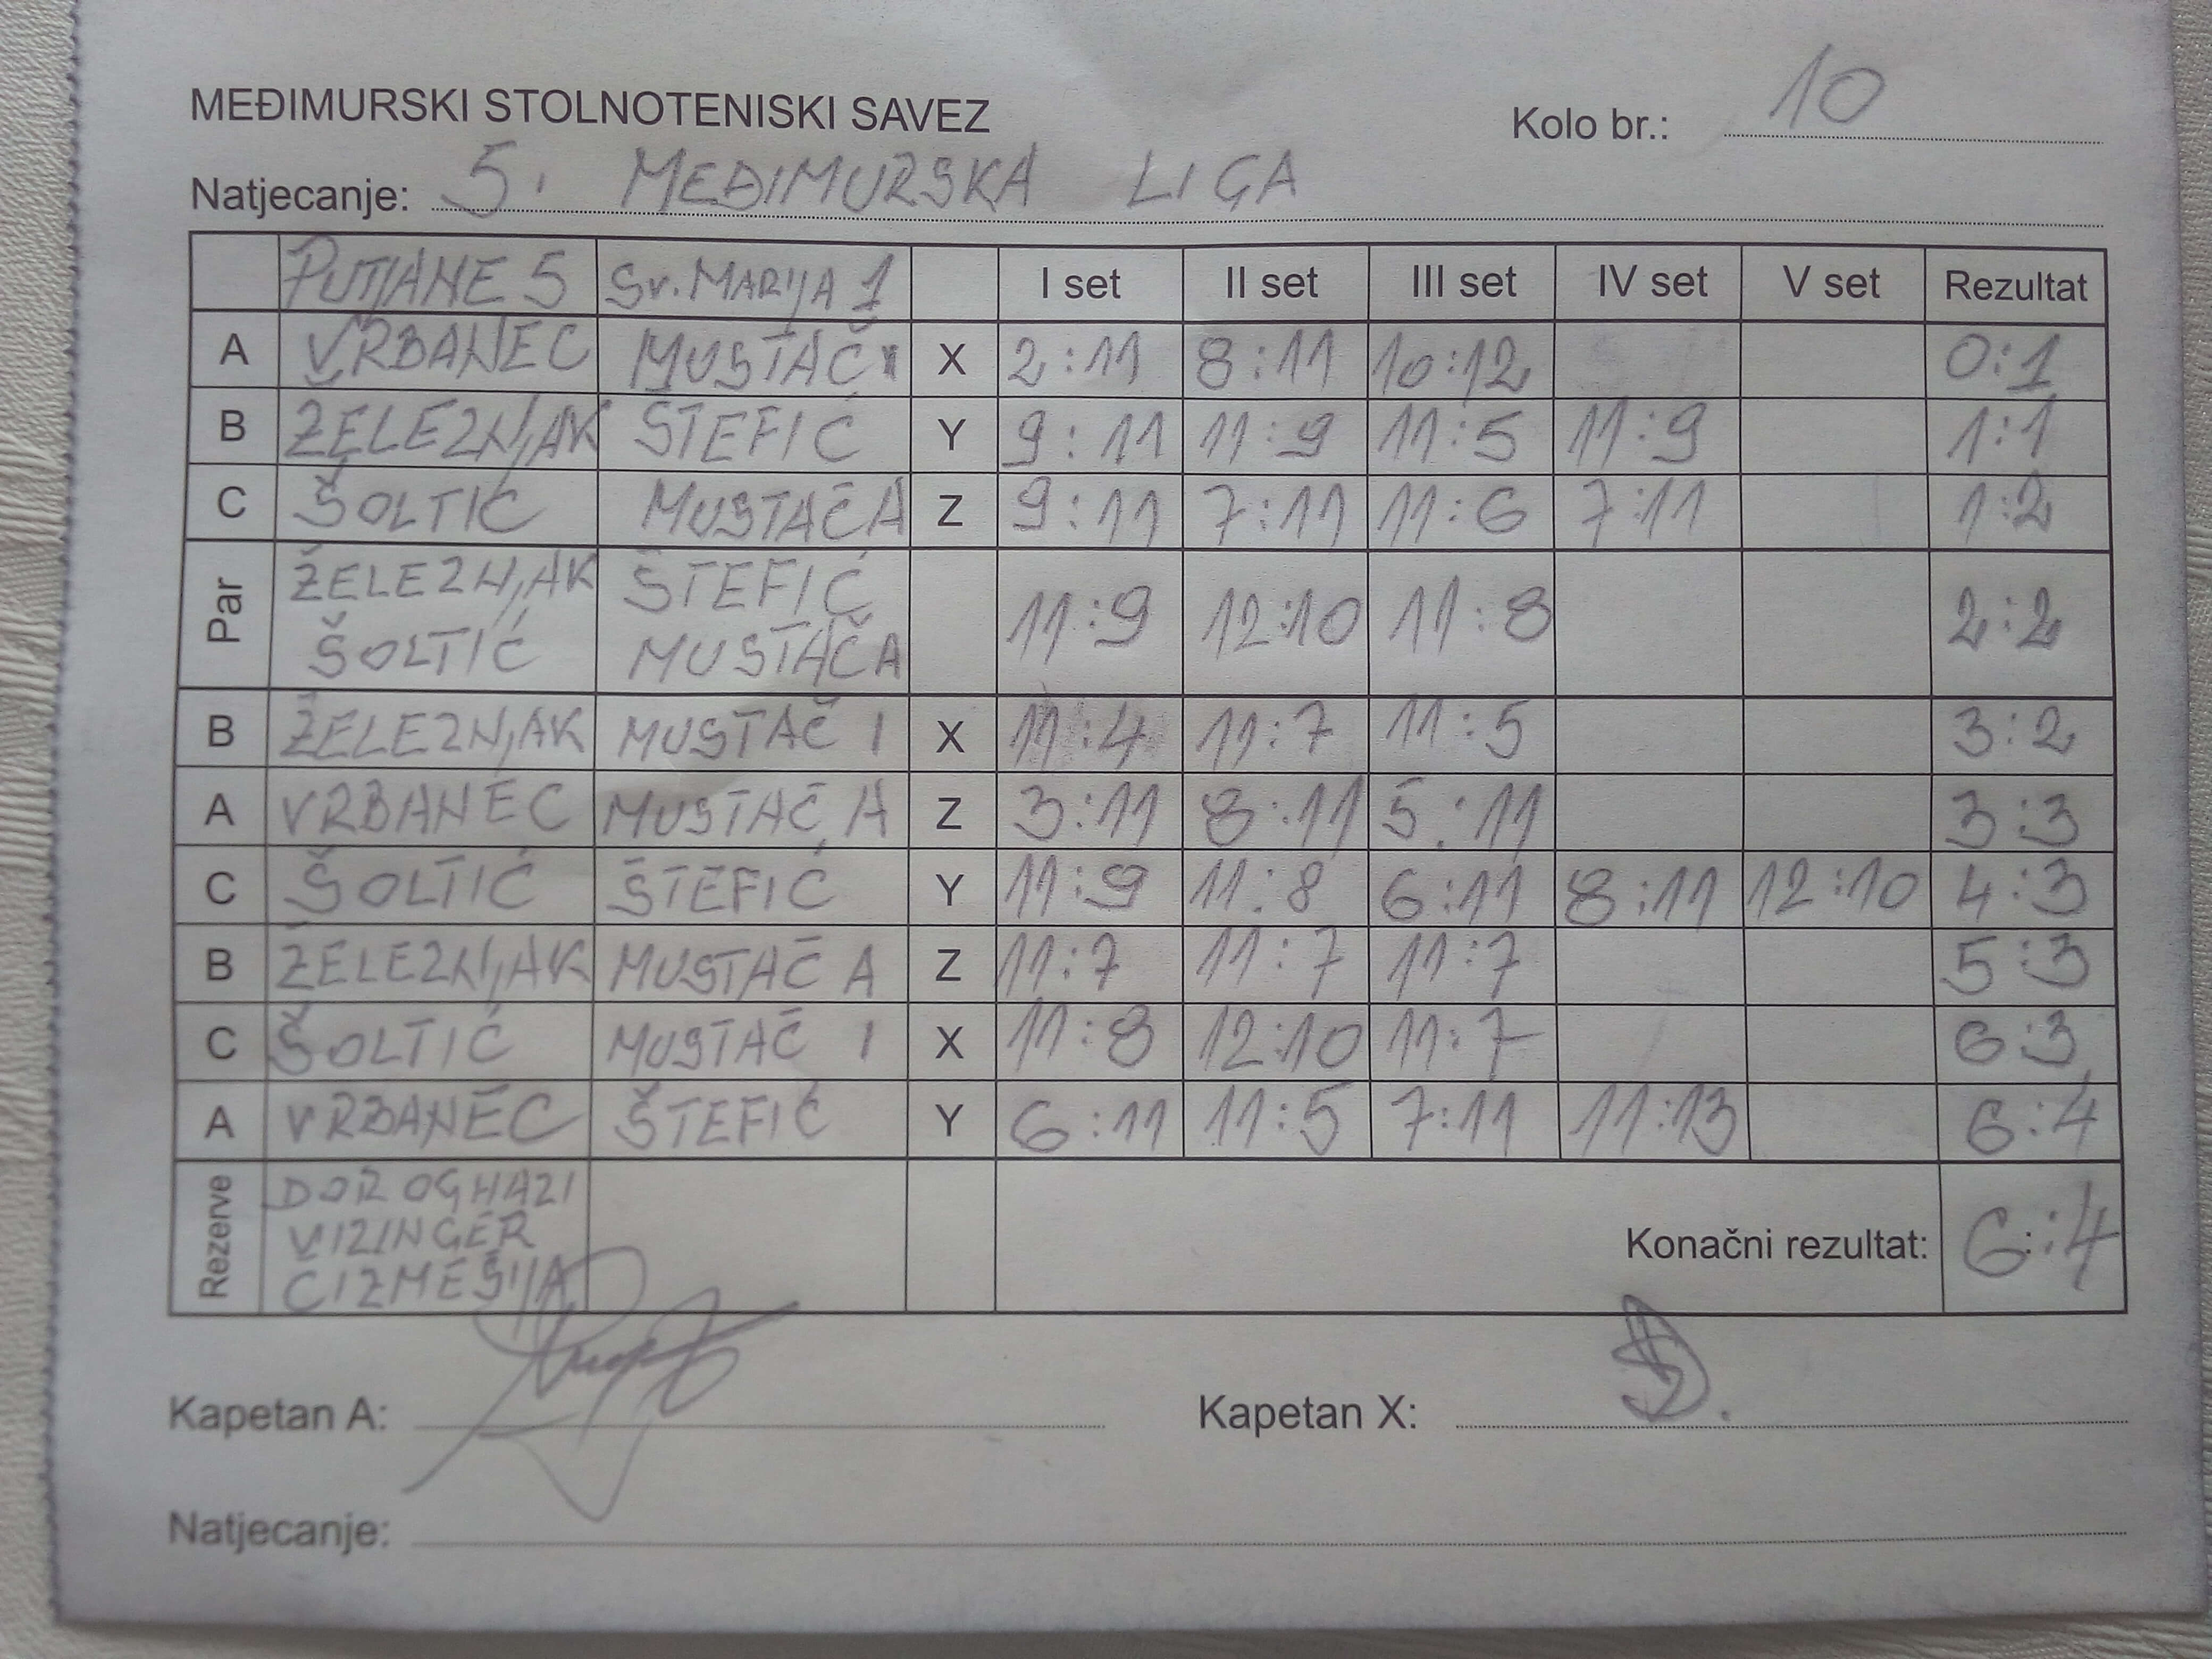 MEĐIMURSKI STOLNOTENISKI SAVEZ Kolo br.: 10
Natjecanje: 5. MEĐIMURSKA LIGA
PUTJANE 5 Sv. MARIJA 1 I set II set III set IV set V set Rezultat
A VRBANEC MUSTAČ I X 2:11 8:11 10:12 0:1
B ŽELEZNJAK ŠTEFIĆ Y 9:11 11:9 11:5 11:9 1:1
C ŠOLTIĆ MUSTAČ A Z 9:11 7:11 11:6 7:11 1:2
Par ŽELEZNJAK ŠTEFIĆ
ŠOLTIĆ MUSTAČ A 11:9 12:10 11:8 2:2
B ŽELEZNJAK MUSTAČ I X 11:4 11:7 11:5 3:2
A VRBANEC MUSTAČ A Z 3:11 8:11 5:11 3:3
C ŠOLTIĆ ŠTEFIĆ Y 11:9 11:8 6:11 8:11 12:10 4:3
B ŽELEZNJAK MUSTAČ A Z 11:7 11:7 11:7 5:3
C ŠOLTIĆ MUSTAČ I X 11:8 12:10 11:7 6:3
A VRBANEC ŠTEFIĆ Y 6:11 11:5 7:11 11:13 6:4
Rezerve DOROGHAZI
VIZINGER
ČIZMEŠIJA
Konačni rezultat: 6:4
Kapetan A: Kapetan X:
Natjecanje: